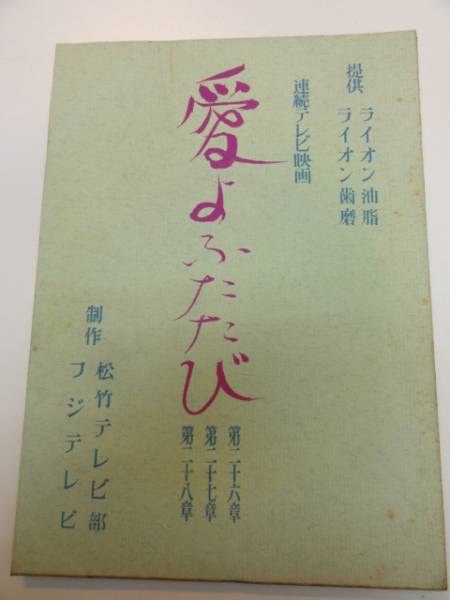 提供 ライオン油脂
ライオン歯磨
連続テレビ映画
愛よふたたび
第二十六章
第二十七章
第二十八章
制作 松竹テレビ部
フジテレビ